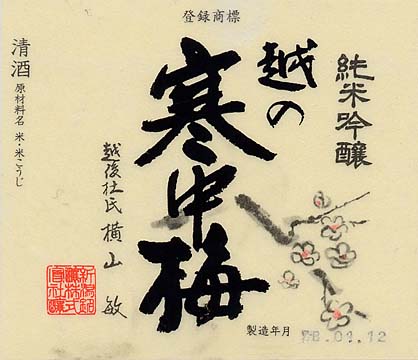 登録商標
純米吟醸
越の
寒中梅
越後杜氏 横山 敏
清酒
原材料名 米・米こうじ
新潟銘
醸株式
会社醸
製造年月